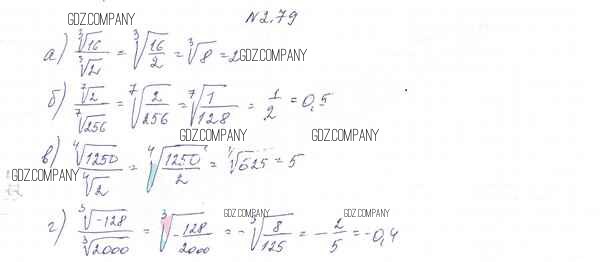 N 2.79
GDZ.COMPANY
а) ∛16 / ∛2 = ∛(16/2) = ∛8 = 2
GDZ.COMPANY
б) ⁷√2 / ⁷√256 = ⁷√(2/256) = ⁷√(1/128) = 1/2 = 0,5
GDZ.COMPANY GDZ.COMPANY
в) ⁴√1250 / ⁴√2 = ⁴√(1250/2) = ⁴√625 = 5
GDZ.COMPANY
г) ∛-128 / ∛2000 = ∛(-128/2000) = -∛(8/125) = -2/5 = -0,4
GDZ.COMPANY GDZ.COMPANY